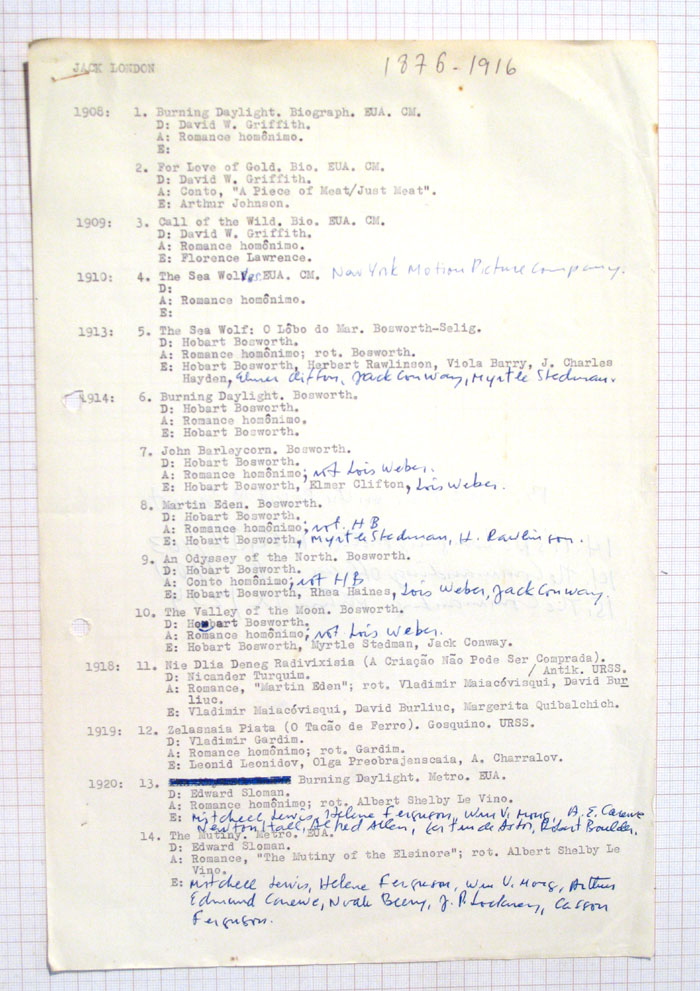 JACK LONDON 1876-1916
1908: 1. Burning Daylight. Biograph. EUA. CM.
D: David W. Griffith.
A: Romance homônimo.
E:
2. For Love of Gold. Bio. EUA. CM.
D: David W. Griffith.
A: Conto, "A Piece of Meat/Just Meat".
E: Arthur Johnson.
1909: 3. Call of the Wild. Bio. EUA. CM.
D: David W. Griffith.
A: Romance homônimo.
E: Florence Lawrence.
1910: 4. The Sea Wolf. EUA. CM. New York Motion Picture Company.
D:
A: Romance homônimo.
E:
1913: 5. The Sea Wolf: O Lôbo do Mar. Bosworth-Selig.
D: Hobart Bosworth.
A: Romance homônimo; rot. Bosworth.
E: Hobart Bosworth, Herbert Rawlinson, Viola Barry, J. Charles
Hayden, Elmer Clifton, Jack Conway, Myrtle Stedman.
1914: 6. Burning Daylight. Bosworth.
D: Hobart Bosworth.
A: Romance homônimo.
E: Hobart Bosworth.
7. John Barleycorn. Bosworth.
D: Hobart Bosworth.
A: Romance homônimo; rot Lois Weber.
E: Hobart Bosworth, Elmer Clifton, Lois Weber.
8. Martin Eden. Bosworth.
D: Hobart Bosworth.
A: Romance homônimo; rot. HB
E: Hobart Bosworth, Myrtle Stedman, H. Rawlinson.
9. An Odyssey of the North. Bosworth.
D: Hobart Bosworth.
A: Conto homônimo; rot HB
E: Hobart Bosworth, Rhea Haines, Lois Weber, Jack Conway.
10. The Valley of the Moon. Bosworth.
D: Hobart Bosworth.
A: Romance homônimo; rot Lois Weber.
E: Hobart Bosworth, Myrtle Stedman, Jack Conway.
1918: 11. Nie Dlia Deneg Radivixisia (A Criação Não Pode Ser Comprada).
D: Nicander Turquim. / Antik. URSS.
A: Romance, "Martin Eden"; rot. Vladimir Maiacóvisqui, David Bur
liuc.
E: Vladimir Maiacóvisqui, David Burliuc, Margerita Quibalchich.
1919: 12. Zelasnaia Piata (O Tacão de Ferro). Gosquino. URSS.
D: Vladimir Gardim.
A: Romance homônimo; rot. Gardim.
E: Leonid Leonidov, Olga Preobrajenscaia, A. Charralov.
1920: 13. Burning Daylight. Metro. EUA.
D: Edward Sloman.
A: Romance homônimo; rot. Albert Shelby Le Vino.
E: Mitchell Lewis, Helene Ferguson, Wm V. Mong, A. E. Carewe
Newton Hall, Alfred Allen, Gertrude Astor, Robert Boulder.
14. The Mutiny. Metro. EUA.
D: Edward Sloman.
A: Romance, "The Mutiny of the Elsinore"; rot. Albert Shelby Le
Vino.
E: Mitchell Lewis, Helene Ferguson, Wm V. Mong, Arthur
Edmund Carewe, Noah Beery, J. P. Lockney, Casson
Ferguson.